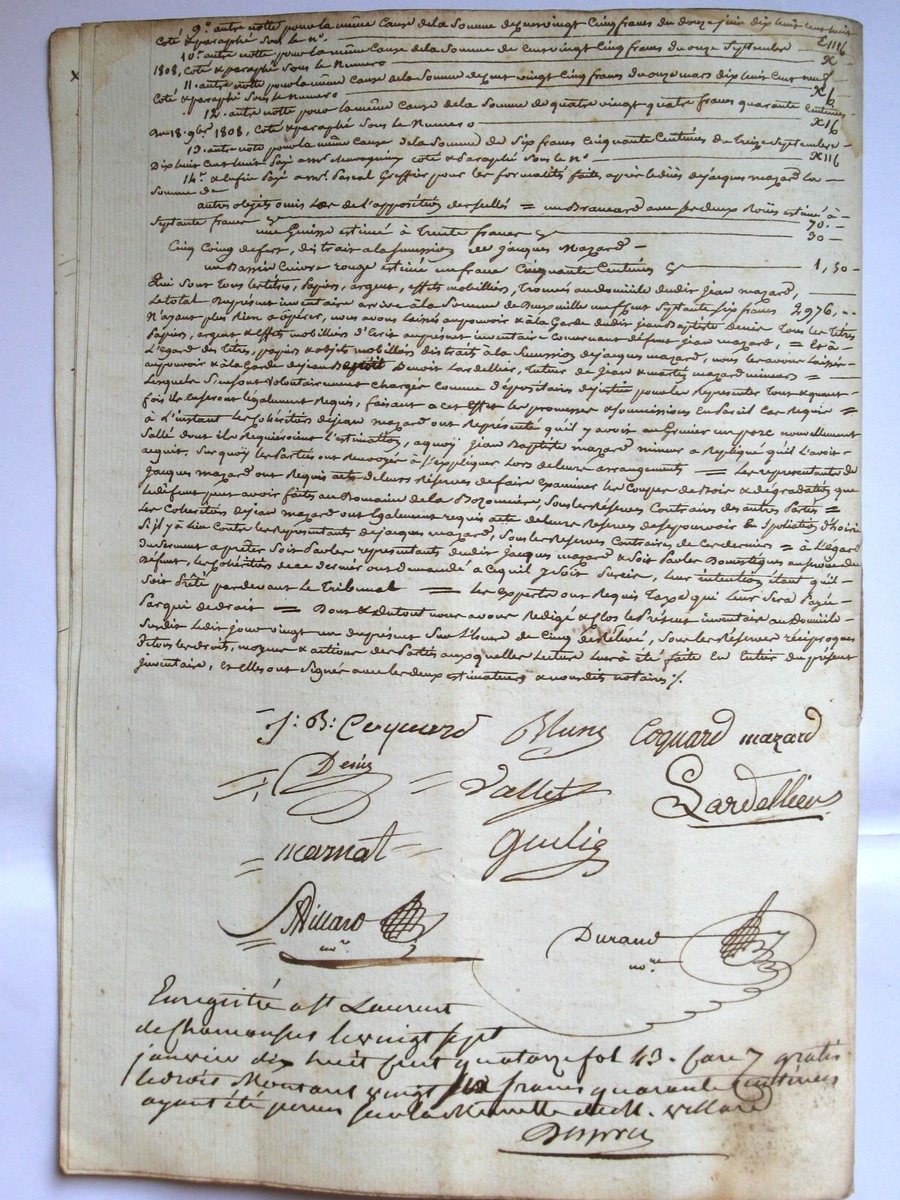 9º. autre notte pour la même Cause de la Somme de cent vingt Cinq francs du douze juin dix huit cent huit
Coté & paraphé Sous le nº. X 116
10º. autre notte pour la même Cause de la Somme de cent vingt Cinq francs du onze Septembre
1808, Coté & paraphé Sous le Numero X
11. autre notte pour la même Cause de la Somme de cent vingt Cinq francs du onze mars dix huit cent neuf
Coté & paraphé Sous le Numero
12. autre notte pour la même Cause de la Somme de quatre vingt quatre francs quarante Centimes
du 18. 9bre 1808, Coté & paraphé Sous le Numero X 116
13. autre notte pour la même Cause de la Somme de Six francs Cinquante Centimes du treize Septembre
Dix huit Cent huit Payé a mr. coté & Paraphé Sous le nº X 116
14º. & Enfin Payé a mr. Pascal Greffier pour les formalités faites après le décès de jacques mazard la
Somme de
autres objets omis Lors de l'apposition des scellés = un Brancard avec ses deux Roües estimé à
Septante francs 70. -
une Genisse estimée à Trente francs 30 -
Cinq Coins de fer, distrait a la Succession de Jacques Mazard -
un Bassin Cuivre rouge estimé un franc Cinquante Centimes 1, 50 -
Qui sont tous les titres, Papiers, argent, effets mobilliers, Trouvés au domicile dudit Jean mazard,
Le total du Présent inventaire arrive à la Somme de Deux mille neuf Cent Septante Six francs 2976, ..
N'ayant plus Rien a opérer, nous avons Laissé au pouvoir & à la Garde dudit jean Baptiste Denis Tous les Titres
Papiers, argent & Effets mobilliers d'Ecrit au présent inventaire concernant défunt Jean mazard, = Et à
L'egard des titres, papiers & objets mobilliers distraits à la Succession de jacques mazard, nous les avons Laissé
au pouvoir & à la Garde de jean Benoit Lardellier, tuteur de Jean & mazard mineurs =
Lesquels Se Sont Volontairement Chargés comme dépositaires de justice pour les Representer Tout & quant-
fois ils en Seront Legalement Requis, faisant a cet Effet les promesses & Soumissions En pareil Cas Requis =
à L'instant les Cohéritiers de jean mazard ont Représenté qu'il y avoit au Grenier un porc nouvellement
Sallé dont ils Requiéroient L'estimation, a quoy Jean Baptiste mazard mineur a Repliqué qu'il L'avoit
acquit. Sur quoy les Parties ont Renvoyé à S'expliquer Lors de leurs arrangements = Les representants de
Jacques mazard ont Requis acte de leurs Réserves de faire Examiner les Coupes de Bois & dégradations que
Le défunt peut avoir faites au Domaine de la Bozonniere, Sous les Réserves Contraires des autres Parties =
Les Cohéritiers de jean mazard ont Egalement requis acte de leurs Réserves de se pourvoir En Spoliation d'hoirie
S'il y à Lieu Contre les Représentants de jacques mazard, Sous les Réserves Contraires de Ces derniers = à L'égard
du Serment a prêter Soit Par les representants dudit jacques mazard & Soit Par les Domestiques au Service du
Défunt, les Cohéritiers de ce dernier ont demandé a Ce qu'il y Soit Surcis, leur intention étant qu'il
Soit Prêté pardevant Le Tribunal = Les Experts ont Requis Taxe qui Leur Sera Payée
Par qui de droit = Dont & du tout nous avons Rédigé & Clos le Présent inventaire au Domicile
Susdit Ledit jour vingt un du présent Sur L'heure de Cinq de Relevé, Sous les Réserves réciproques
de tous les droits, moyens & actions des Parties auxquelles Lecture Leur à été faite En Entier du présent
inventaire, Et elles ont Signé avec les deux estimateurs & nousdits notaires /.
J: B: Coquard Coquard mazard
Denis Vallet Lardellier
marnat
Villard nore. Durand nore.
Enregistré a St Laurent
de Chamousset le vingt sept
janvier dix huit cent quatorze fol 43. Case 7 gratis
le droit Montant a vingt francs quarante centimes
ayant été perçu sur la Minutte de M. villard